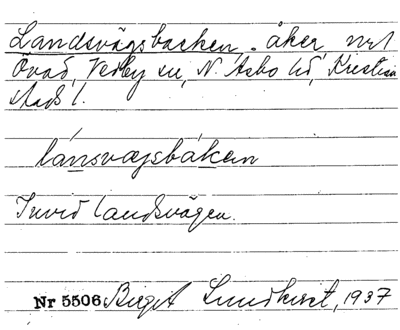 Landsvägsbacken, åker, nr 1
Övad, Vedby sn, N. Åsbo hd, Kristian
stads l.
lánsvægsbákan
Invid landsvägen.
Nr 5506 Birgit Lundkvist, 1937